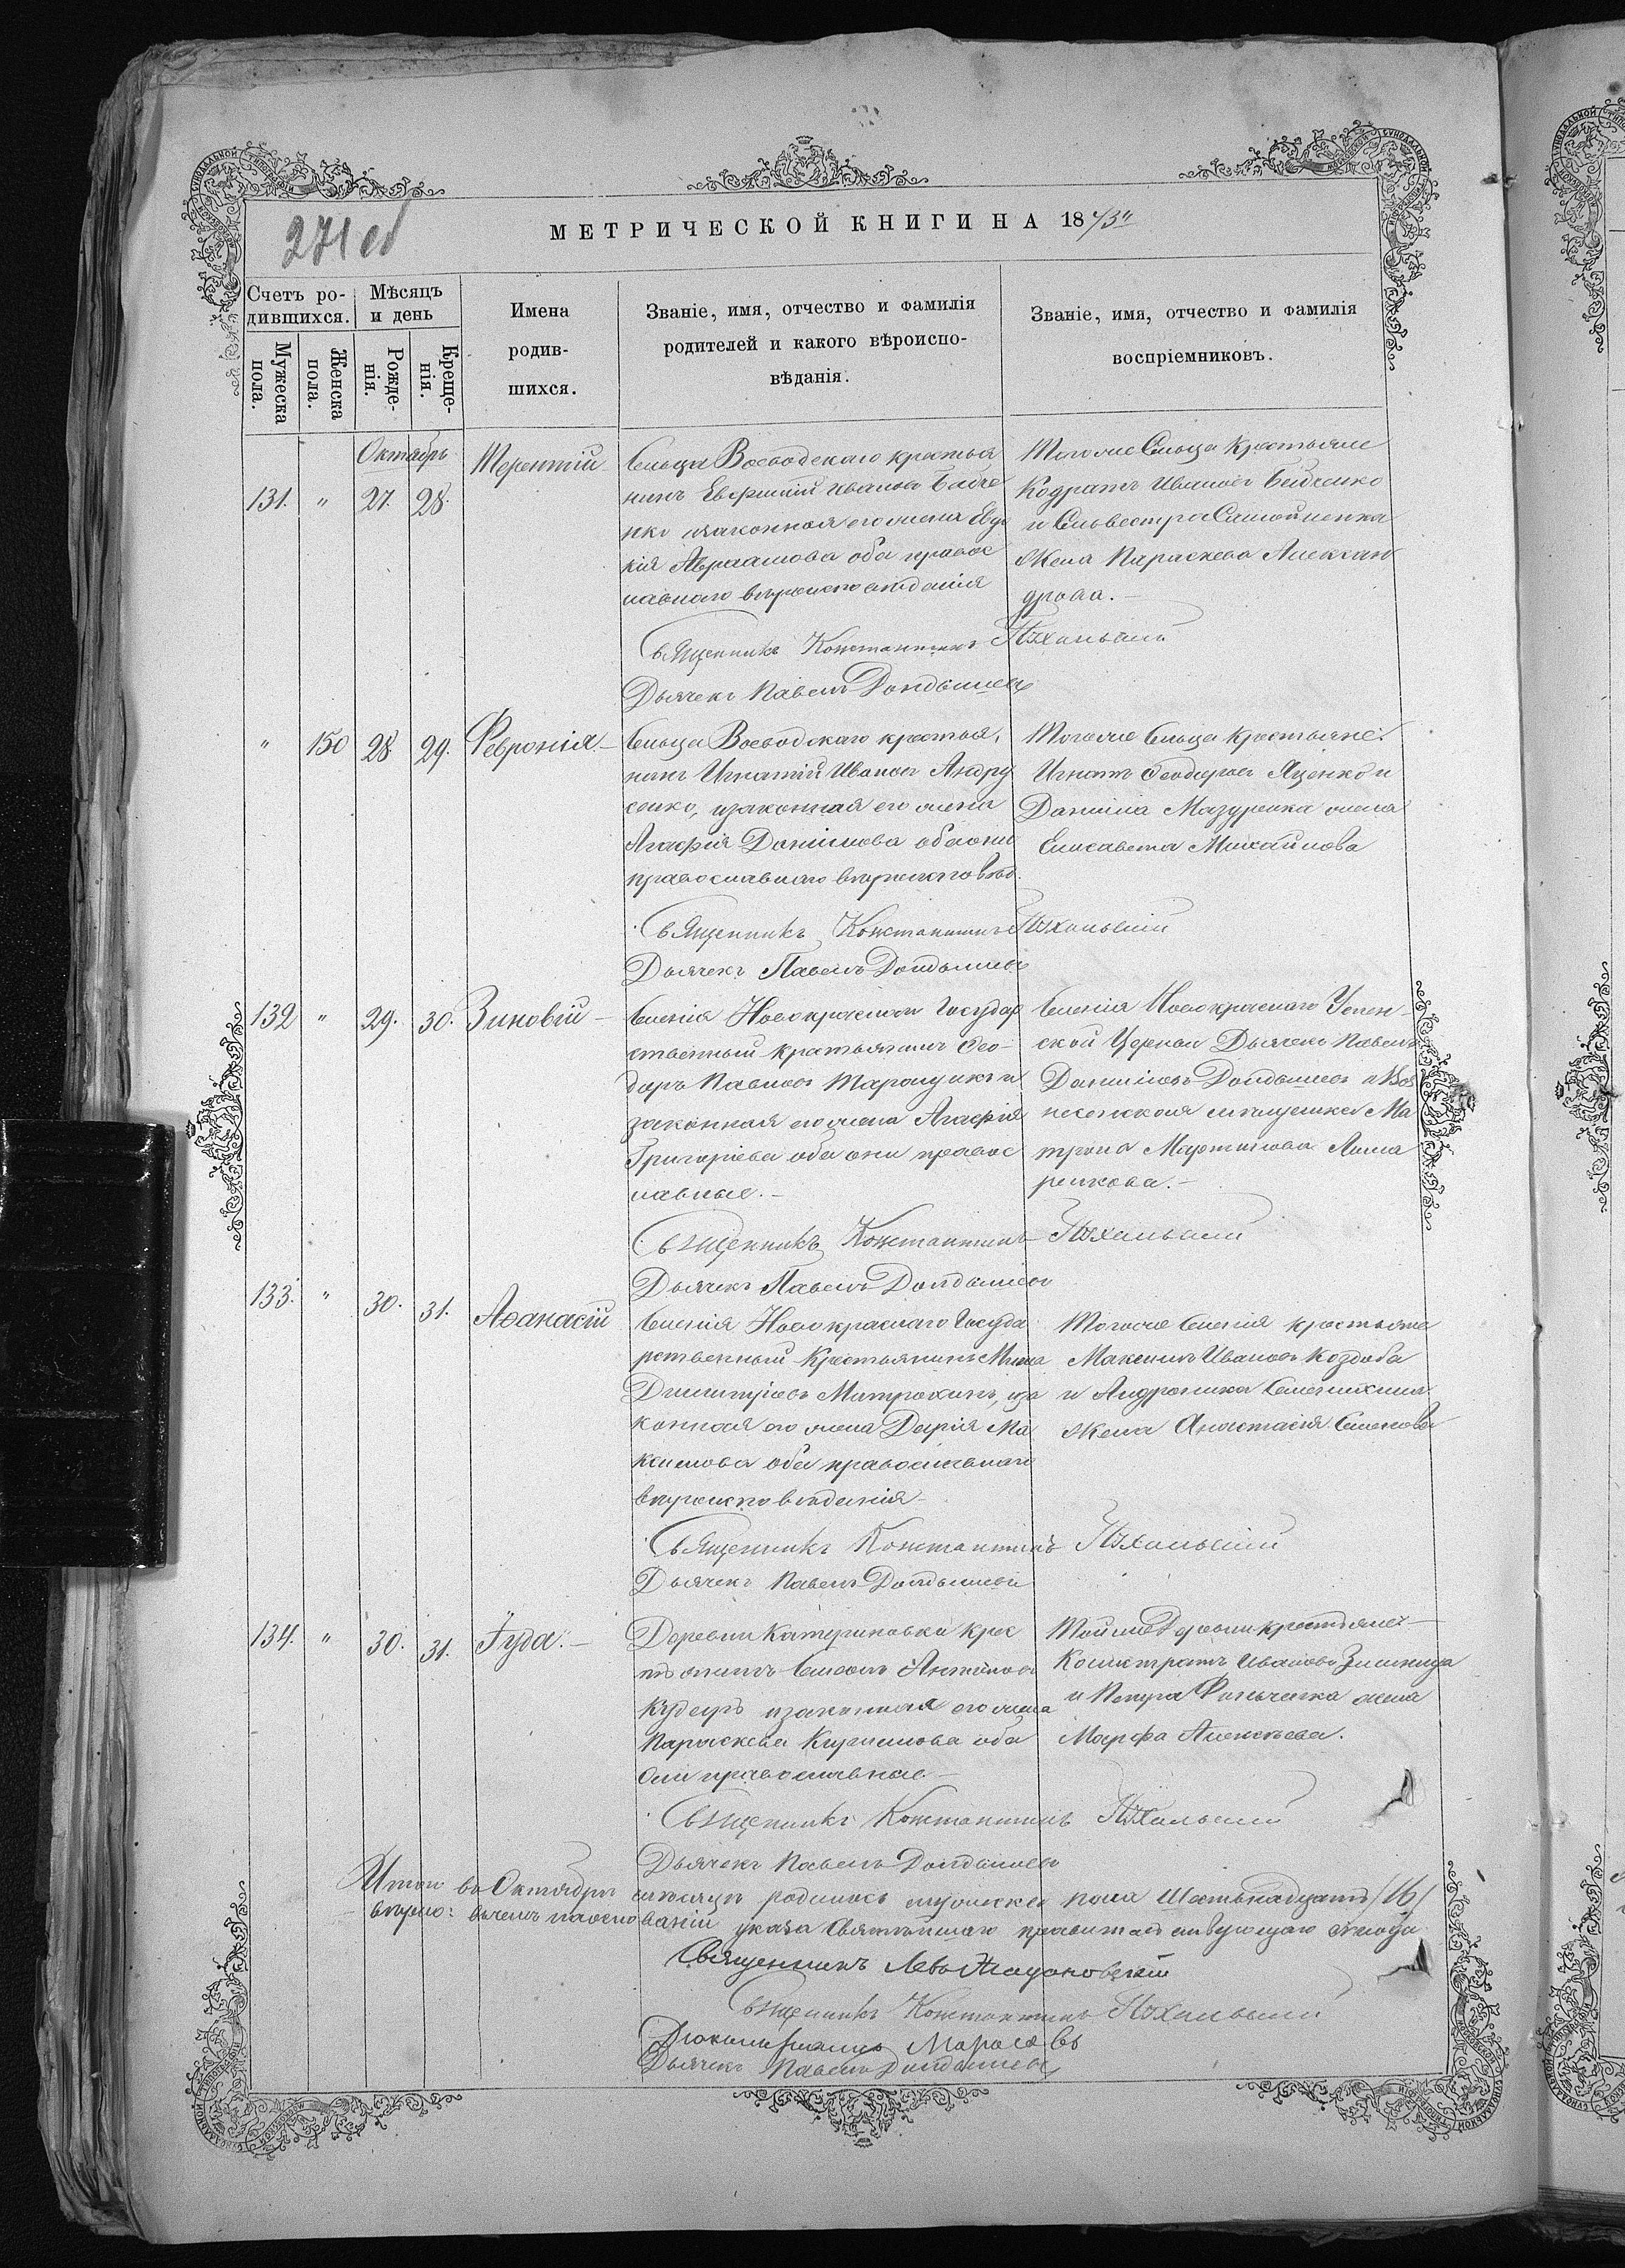 271 об
МЕТРИЧЕСКОЙ КНИГИ НА 1873й
Счетъ ро-
дившихся.
Мужеска
пола.
Женска
пола.
Мѣсяцъ
и день
Рожде-
нія.
Креще-
нія.
Имена
родив-
шихся.
Званіе, имя, отчество и фамилія
родителей и какого вѣроиспо-
вѣданія.
Званіе, имя, отчество и фамилія
воспріемниковъ.
Октябрь
131. " 27. 28.
Терентій
Сельца Воеводскаго крестья
нинъ Евфимій Ивановъ
и законная его жена Евдо
кія Авраамова оба правос
лавнаго вѣроисповѣданія
Тогоже Сельца Крестьяне
Кодратъ Ивановъ
и Сильвестра Самойленка
Жена Параскева Алексан
дрова.-
Священникъ Константинъ
Дьячекъ Павелъ
" 150 28 29.
Февронія.-
Сельца Воеводскаго крестья,
нинъ Игнатій Ивановъ Андру
сенко, изаконная его жена
Агафія Даніилова оба они
православнаго вѣроисповѣд.
Тогоже Сельца Крестьяне.
Игнатъ Ѳеодоровъ Яценко и
Даніила Мазуренка жена
Елисавета Михайлова
Священникъ Константинъ
Дьячекъ Павелъ
132 " 29. 30.
Зиновій -
Селенія Новокраснаго Государ
ственный крестьянинъ Ѳео-
доръ Павловъ и
законная его жена Агафія
Григорьева оба они правос
лавные.-
Селенія Новокраснаго Успен-
ской Церкви Дьячекъ Павелъ
Даниловъ и Воз
несенская мѣщанка Ма
трона Мартинова
Священникъ Константинъ
Дьячекъ Павелъ
133. " 30. 31.
Аѳанасій
Селенія Новокраснаго Госуда
рственный Крестьянинъ Мина
Димитріевъ Митрохинъ, иза
конная его жена Дарія Ма
ксимова оба православнаго
вѣроисповѣданія-
Тогоже Селенія крестьяне
Максимъ Ивановъ Коздоба
и Андроника
Жена Анастасія Семенова
Священникъ Константинъ
Дьячекъ Павелъ
134. " 30. 31.
Іуда.-
Деревни Катериновки Крес
тьянинъ Симеонъ Антоновъ
изаконная его жена
Параскева Кирилова оба
Они православные.-
Тойже Деревни крестьяне-
Калистратъ Ивановъ
и Петра жена
Марфа Алексѣева.
Священникъ Константинъ
Дьячекъ Павелъ
Итого въ Октябрѣ мѣсяцѣ родилось мужеска пола Шестьнадцать /16/
указа Святѣйшаго правительствующаго Синода
Священникъ Левъ
Священникъ Константинъ
Дьячекъ Павелъ